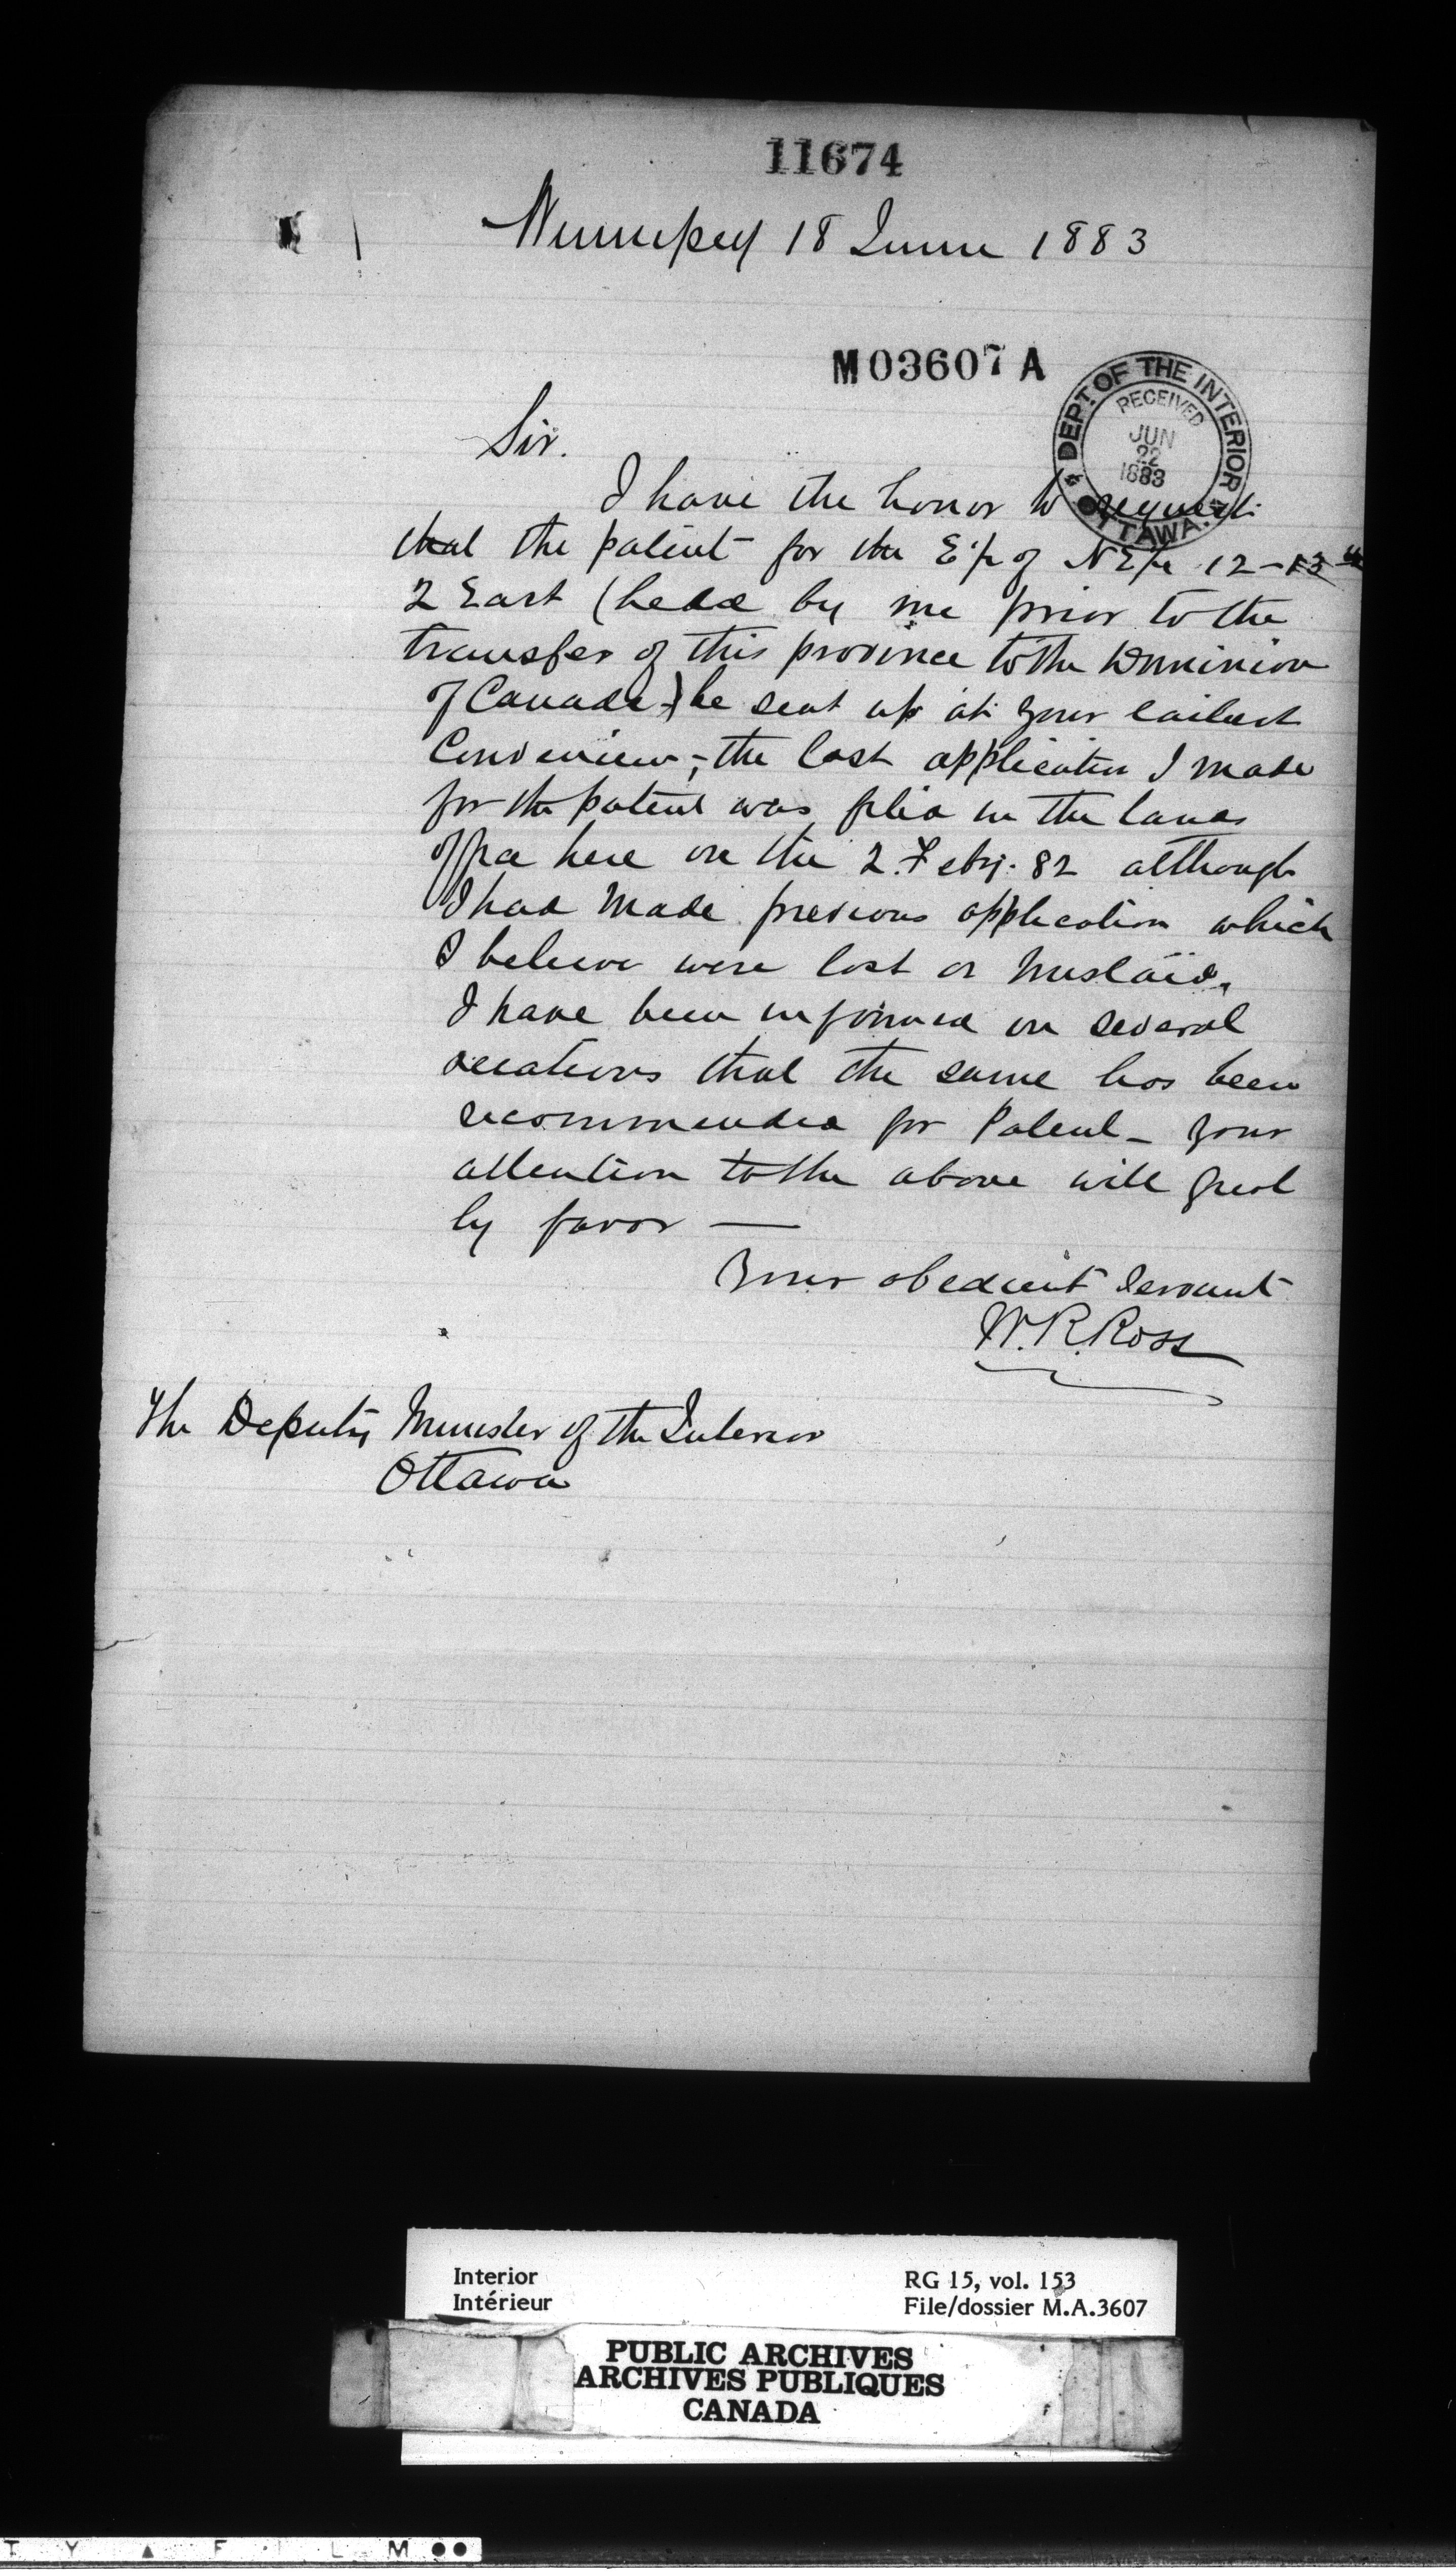 11674
Winnipeg 18 June 1883
M03607 A
DEPT. OF THE INTERIOR
RECEIVED
JUN
22
1883
OTTAWA.
Sir.
I have the honor to request
that the patent for the E½ of NE¼ 12-13
2 East (held by me prior to the
transfer of this province to the Dominion
of Canada) be sent up at your earliest
Convenience, - the last application I made
for the patent was filed in the land
office here on the 2. Feby. 82 although
I had made previous application which
I believe were lost or mislaid.
I have been informed on several
occations that the same has been
recommended for Patent - Your
attention to the above will great
ly favor —
Your obedient Servant
W. R. Ross
The Deputy Minister of the Interior
Ottawa
Interior
Intérieur
RG 15, vol. 153
File/dossier M.A.3607
PUBLIC ARCHIVES
ARCHIVES PUBLIQUES
CANADA
T Y ▲ F I L M ●●